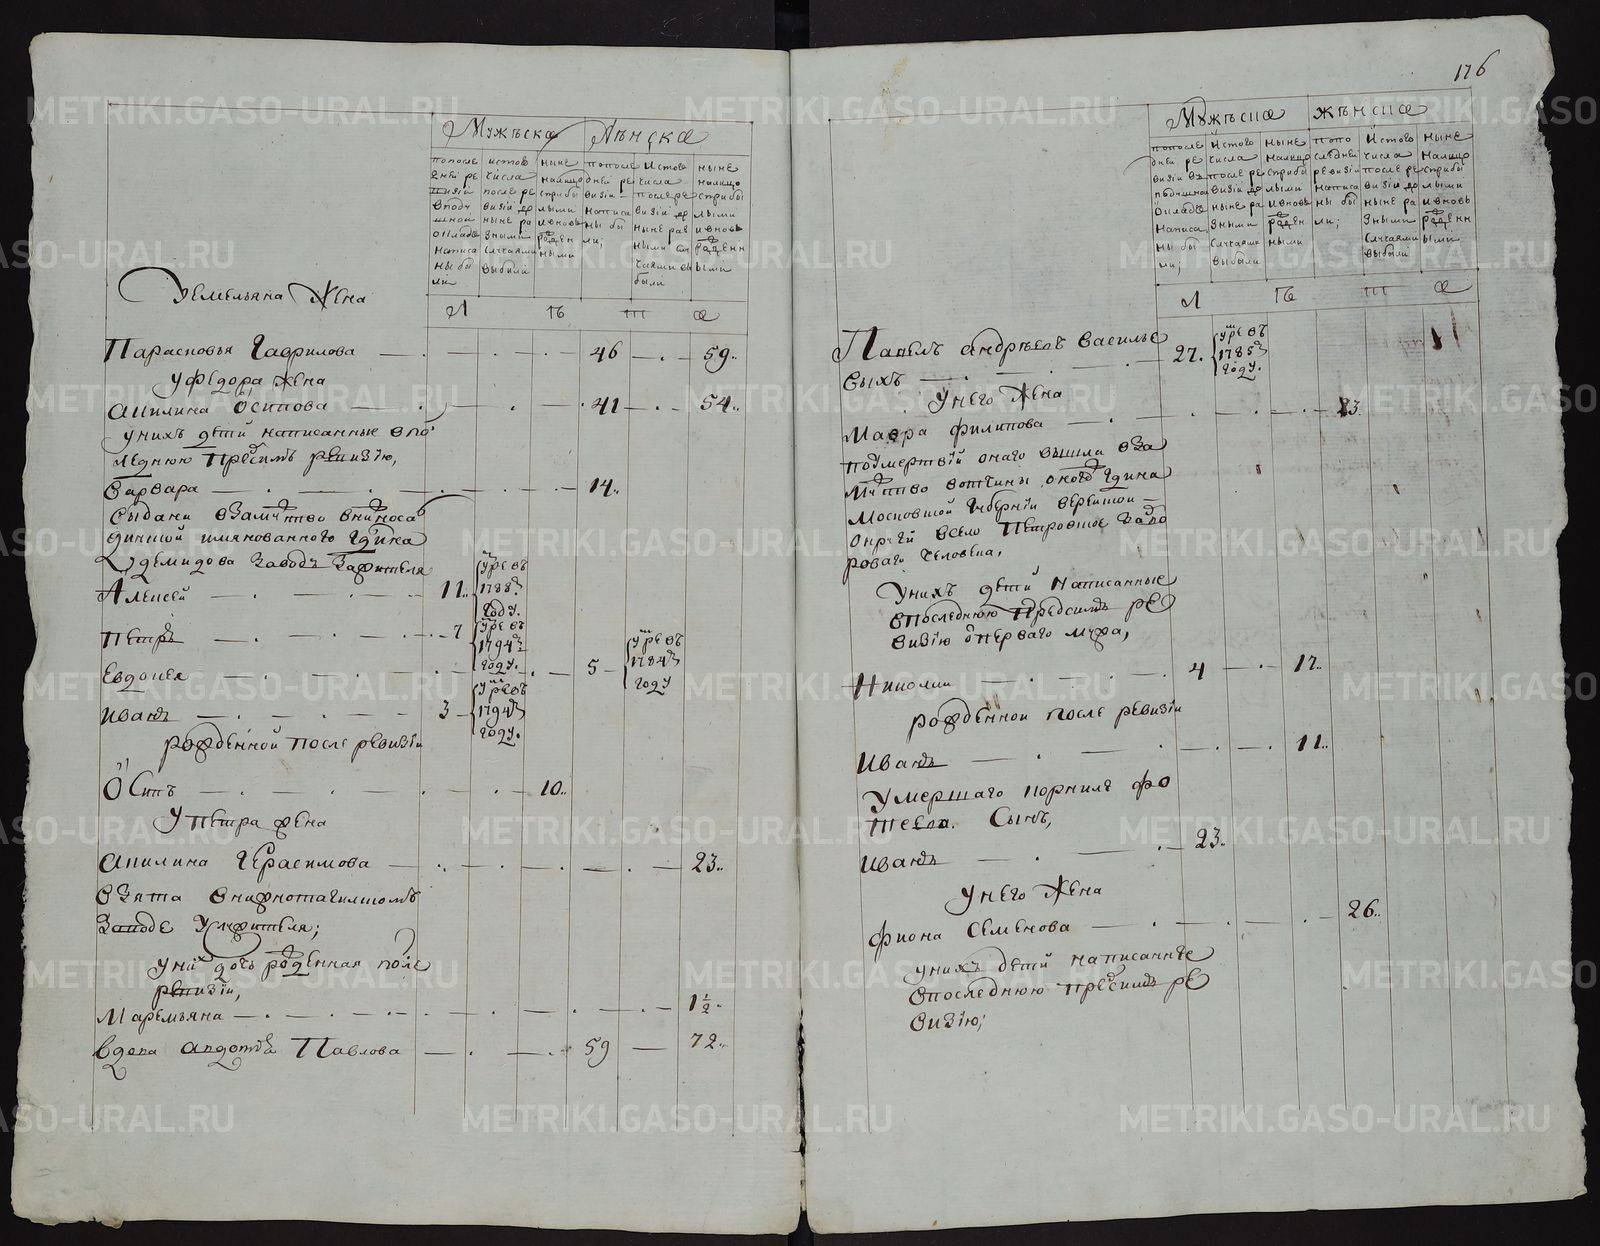 176
Мужеска
Женска
попосле
дней ре
визiи
вподу
шной
окладъ
написа
ны бы
ли
Истого
числа
после ре
визiи до
ныне ра
зными
случаями
выбыли
ныне
налицо
сприбы
лыми
ивновь
рожден
ными
попосле
дней ре
визiи
написа
ны бы
ли;
Истого
числа
после ре
визiи до
ныне раз
ными слу
чаями вы
были
ныне
налицо
сприбы
лыми
ивновь
рожденн
ыми
Л Ѣ Т А
Уемельяна Жена
Парасковья Гаврилова 46 59..
Уфедора жена
Акилина Осипова 41 54..
унихъ дети написанные впо
леднюю предсимъ ревизiю,
Варвара 14..
выдана взамужство
имянованного Гдина
Демидова заводъ Зажителя
Алексей 11.. умре въ 1788м году.
Петръ 7 умре въ 1794м году.
Евдокея 5 умре въ 1784м году
Иванъ 3 умре въ 1794м году.
рожденной после ревизiи
Осипъ 10..
Упетра жена
Акилина Герасимова 23..
взята внижнотагилскомъ
Заводе Ужителя;
уних дочь рожденная после
ревизiи,
Маремьяна 1½..
вдова авдотья Павлова 59 72..
Мужеска
женска
попосле
дней ре
визiи въ
подушной
окладъ
написа
ны бы
ли;
Истого
числа
после ре
визiи до
ныне ра
зными
случаями
выбыли
ныне
налицо
сприбы
лыми
ивновь
рожден
ными
попо
следней
ревизiи
написа
ны бы
ли;
Истого
числа
после ре
визiи до
ныне ра
зными
случаями
выбыли
ныне
налицо
сприбы
лыми
ивновь
рожденн
ыми
Л Ѣ Т А
Павелъ андреевъ Василье
выхъ 27. умре въ 1785м году.
Унего Жена
Мавра филипова 23.
посмертiи онаго вышла вза
мужство вотчины оного Гдина
Московской Губернiи верейской
округи всело Петровское
роваго человека,
Унихъ дети написанные
впоследнюю предсимъ ре
визiю отперваго мужа,
Николаи 4 17..
рожденнои после ревизiи
Иванъ 11..
Умершаго корнила фо
теева. Сынъ,
Иванъ 23..
Унего Жена
фиона Семенова 26..
унихъ дети написанные
впоследнюю предсимъ ре
визiю;
METRIKI.GASO-URAL.RU